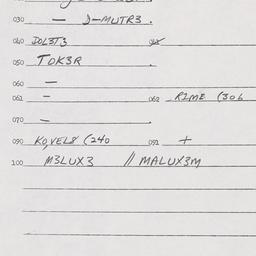 030 — J-MUTR3 .
040 DOL3T3
050 TOK3R .
060 —
061 — 062 RIME (306
070 — .
090 KOVEL8 (240 091 +
100 M3LUX3 // MALUX3M